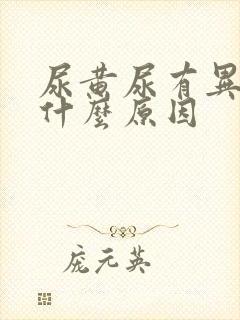 尿黄尿有異
什麼原因
庞元英